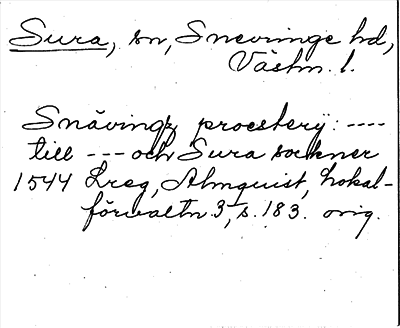 Sura, sn, Snevringe hd,
Västm. l.
Snävingz proestery: ----
till --- och Sura sockner
1544 Lreg, Almquist, Lokal-
förvaltn 3, s. 183. orig.